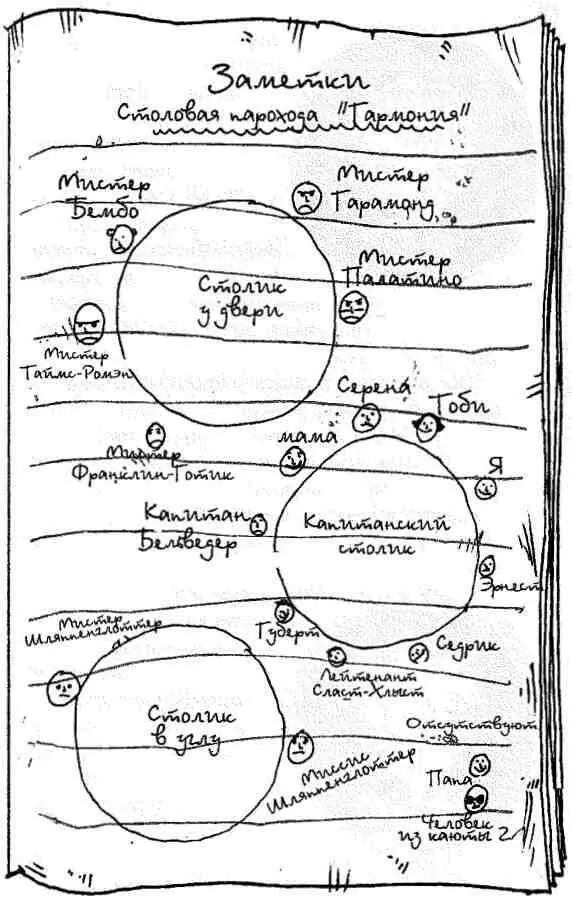 Заметки
Столовая парохода "Гармония"
Мистер
Бембо
Мистер
Гарамонд
Столик
у двери
Мистер
Палатино
Мистер
Таймс-Ромэн
Серена
Тоби
мама
Мистер
Франклин-Готик
Я
Капитан
Бельведер
Капитанский
столик
Эрнест
Мистер
Шляппенглоттер
Губерт
Седрик
Лейтенант
Сласт-Хлыст
Столик
в углу
Отсутствуют
Миссис
Шляппенглоттер
Папа
Человек
из каюты 2